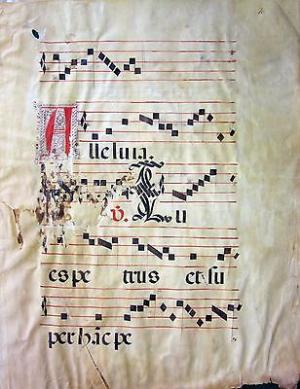 Alleluia.
V. Tu
es pe trus et su
per hāc pe